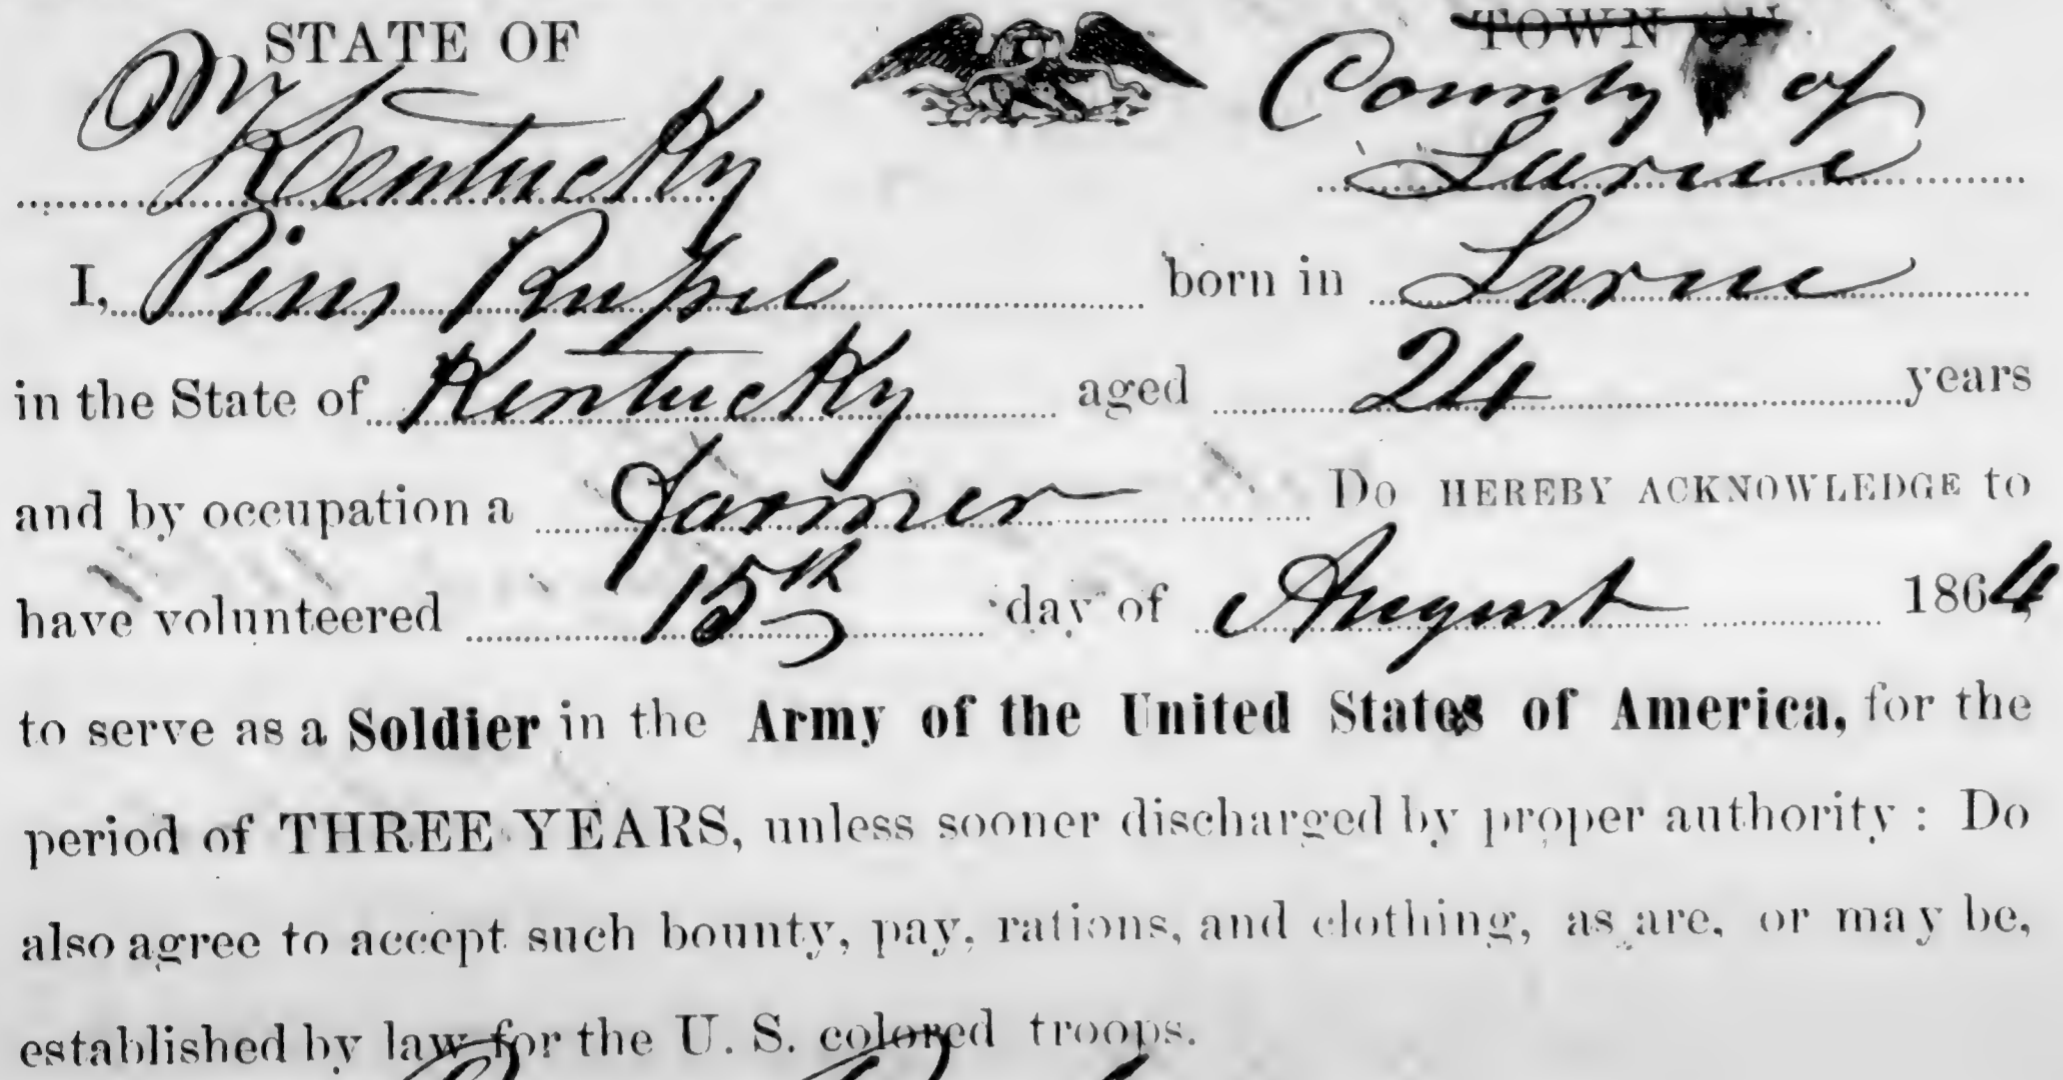 STATE OF
TOWN OF
County of
Kentucky
Larue
I, Pius Russel born in Larue
in the State of Kentucky aged 24 years
and by occupation a Farmer Do HEREBY ACKNOWLEDGE to
have volunteered 15th day of August 1864
to serve as a Soldier in the Army of the United States of America, for the
period of THREE YEARS, unless sooner discharged by proper authority : Do
also agree to accept such bounty, pay, rations, and clothing, as are, or may be,
established by law for the U. S. colored troops.